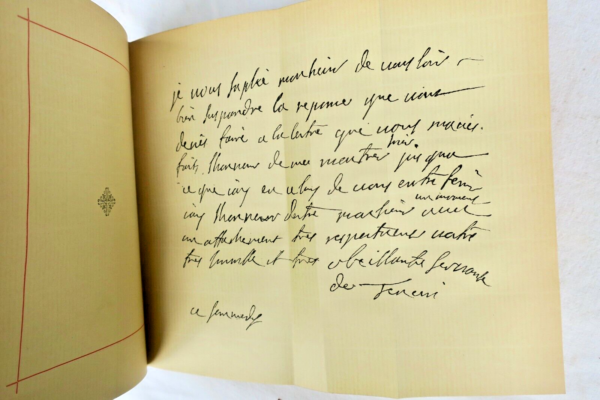 je vous suplie monsieur de vouloir
bien suspendre la reponce que vous
devés faire a la lettre que vous maviés
fait lhonneur de me montrer hier jusque
a ce que iay eu alonr de vous entretenir un moment
iay lhonneur dettre monsieur avec
un attachement tres respectueux votre
tres humble et tres obeissante servante
de Tencin
ce samedy